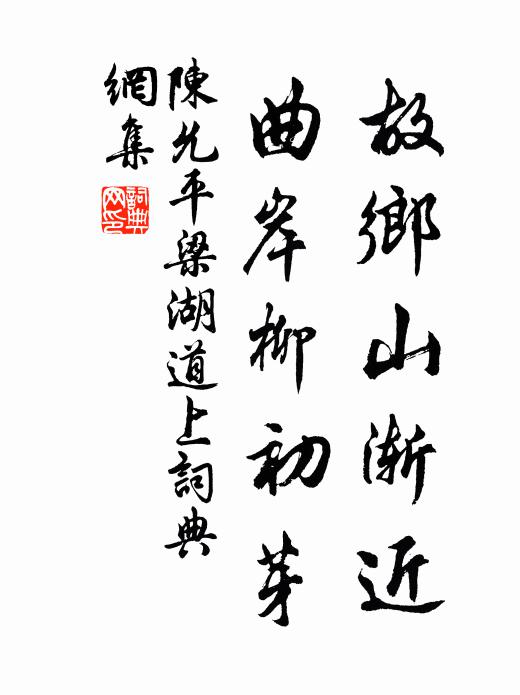 故鄉山漸近
曲岸柳初芽
陳允平梁湖道上詞典
網集
詞典網印